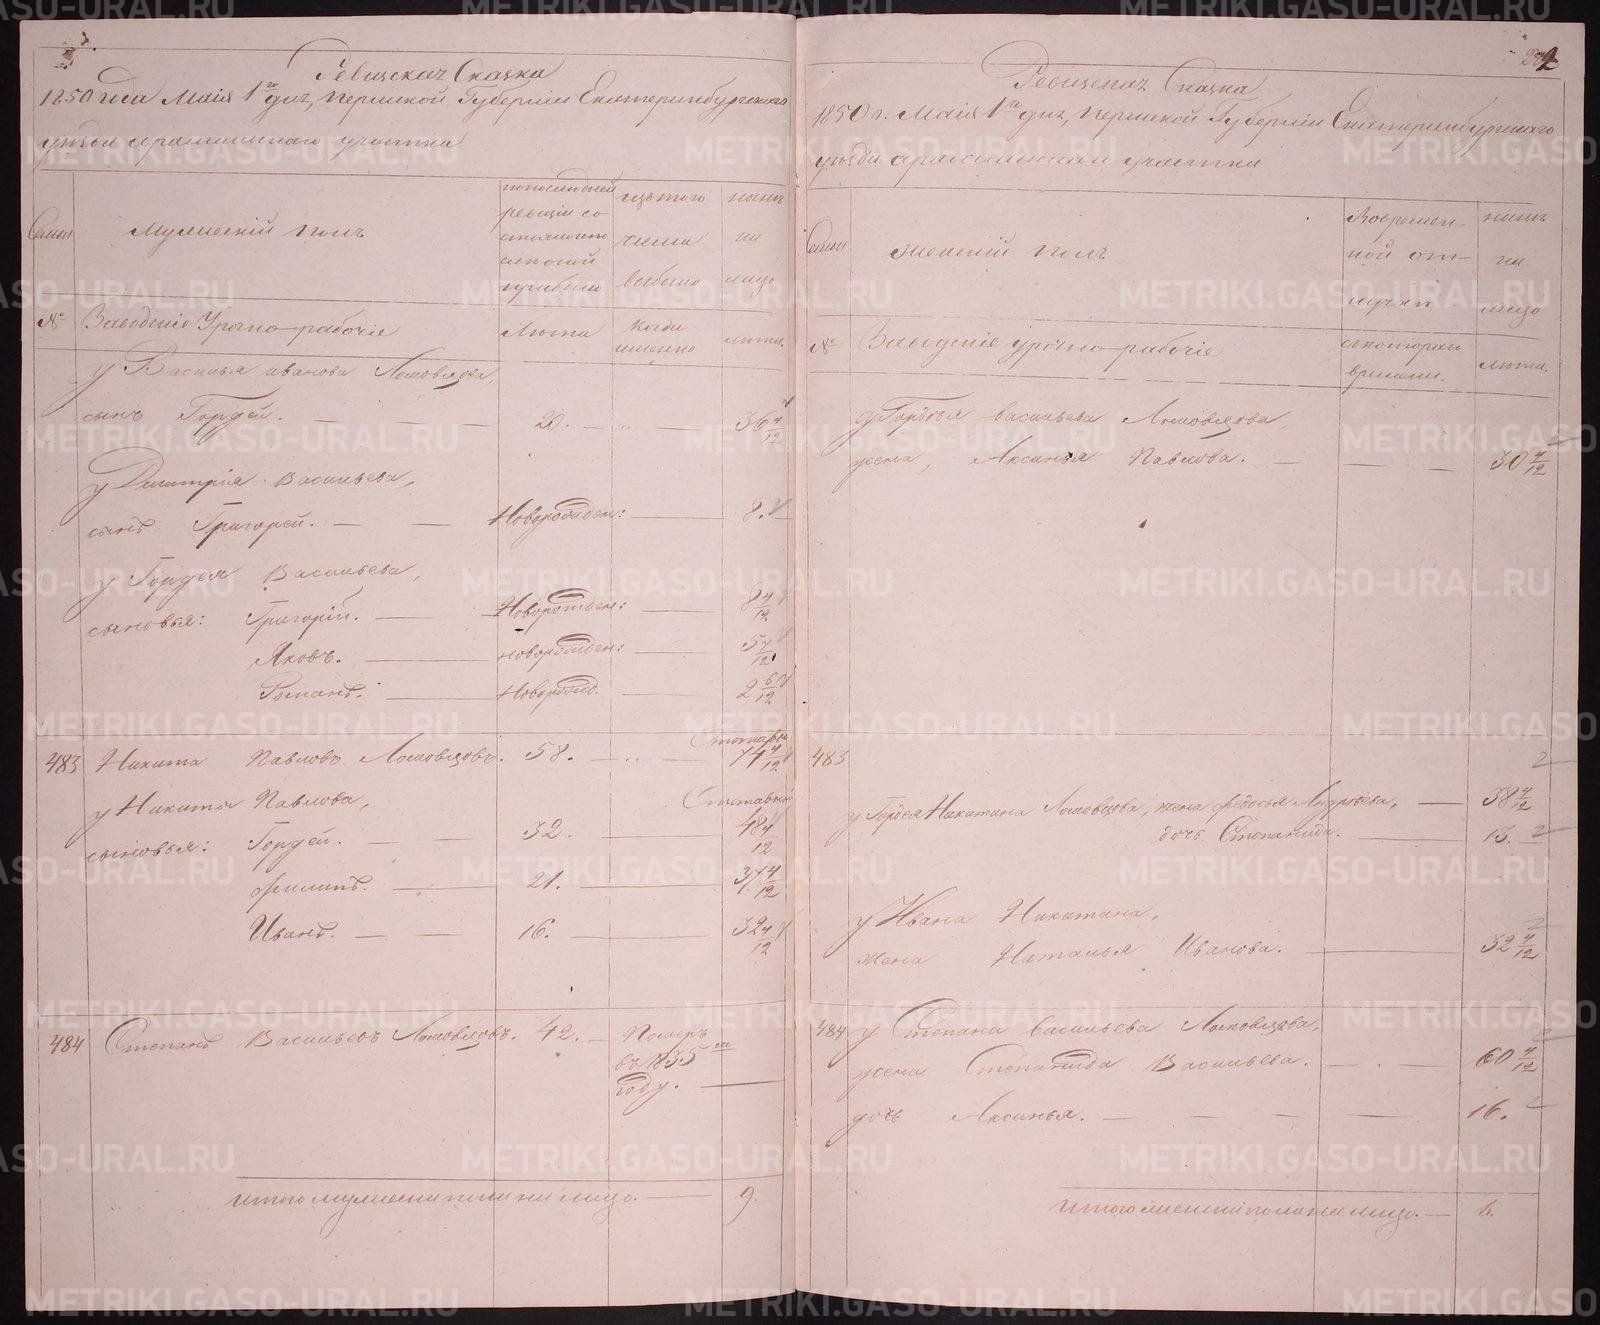 Ревизская Сказка
1850 года Маія 1го дня, Пермской Губерніи Екатеринбургскаго
уѣзда арамильскаго участка
Семьи
Мужескій полъ
по последней ревизіи состояло и после оной прибыло
изъ того числа выбыло
нынѣ на лицо
№
Заводскіе Урочно-рабочіе
Лѣта
когда именно
лѣта.
у Василья иванова Ломовцова,
сынъ Гордей. — 20. — „ — 36 4/12
у Дмитрія Васильева,
сынъ Григорей. — Новорожден: — 8.
у Гордея Васильева,
сыновья: Григорій. — Новорожден: — 8 4/12
Яковъ. — новорожден: — 5 4/12
Романъ. — Новорожд. — 2 6/12
483 Никита Павловъ Ломовцовъ. 58. — „ — 74 4/12
у Никиты Павлова,
сыновья: Гордей. — 32. — 48 4/12
Филипъ. — 21. — 37 4/12
Иванъ. — 16. — 32 4/12
484 Степанъ Васильевъ Ломовцовъ. 42. — Померъ
въ 1835м
году. —
Итого мужеска пола на лицо. — 9.
Ревизская Сказка
1850 г. Маія 1го дня, Пермской Губерніи Екатеринбургскаго
уѣзда арамильскаго участка
Семьи
Женскій полъ
Во временной отлучкѣ
нынѣ на лицо
№
Заводскіе урочно-рабочіе
съ котораго времени.
лѣта.
у Гордѣя васильева Ломовцова,
жена, Аксинья Павлова. — 30 4/12
483
у Гордея Никитина Ломовцова, жена Федосья Андреева, — 38 4/12
дочь Степанида. — 13.
у Ивана Никитина,
жена Наталья Иванова. — 32 4/12
484 у Степана Васильева Ломовцова,
жена Степанида Васильева. — 60 4/12
дочь Аксинья. — 16.
Итого женска пола на лицо. — 6.
METRIKI.GASO-URAL.RU